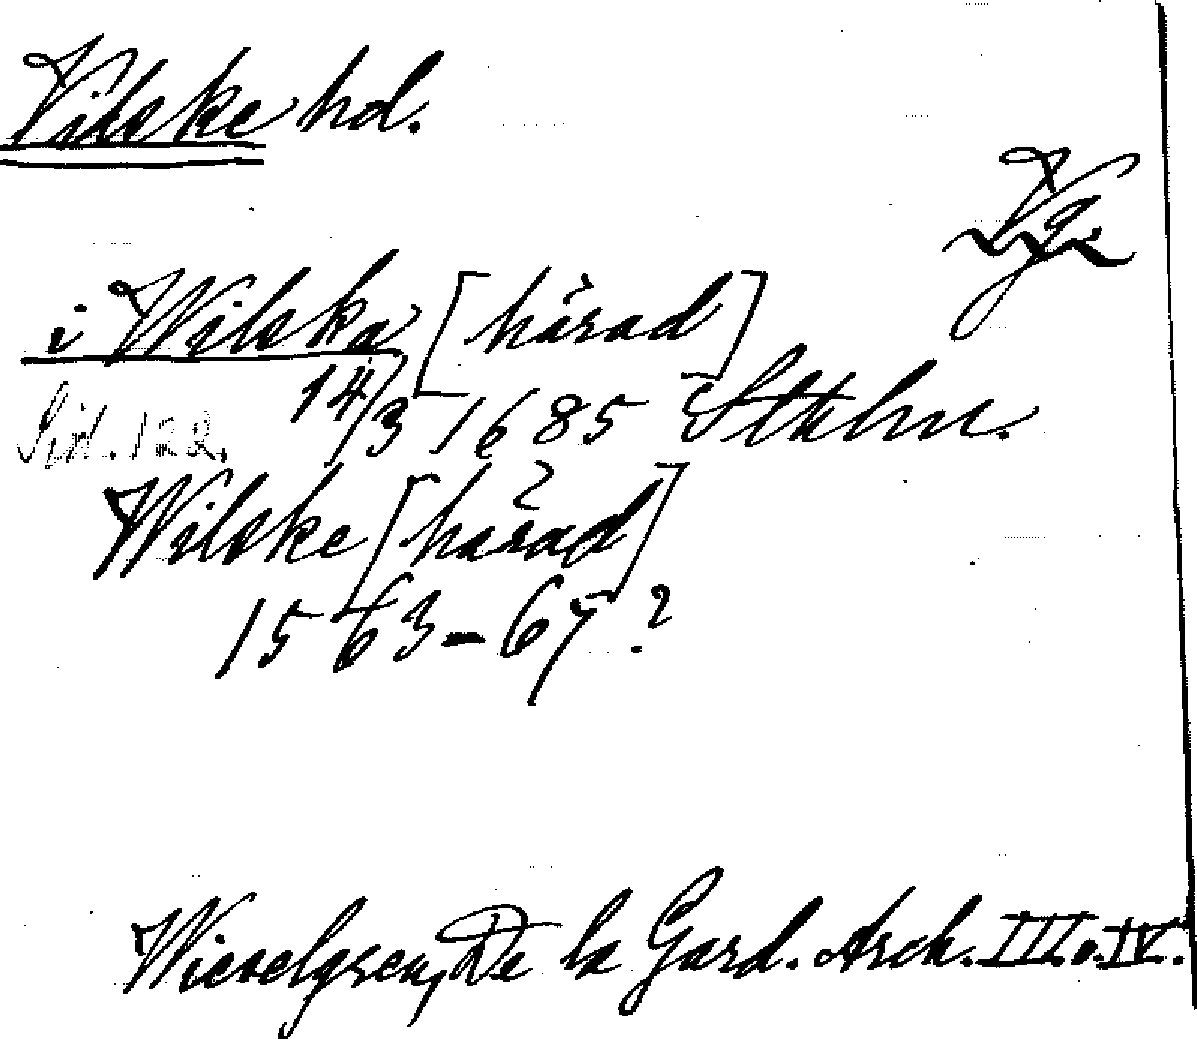 Vilske hd.
Vg.
i Wilska [härad]
14/3 1685 Sthlm.
Sid. 122.
Wilske [härad]
1563-67?
Wieselgren, De la Gard. Arch. III. o. IV.